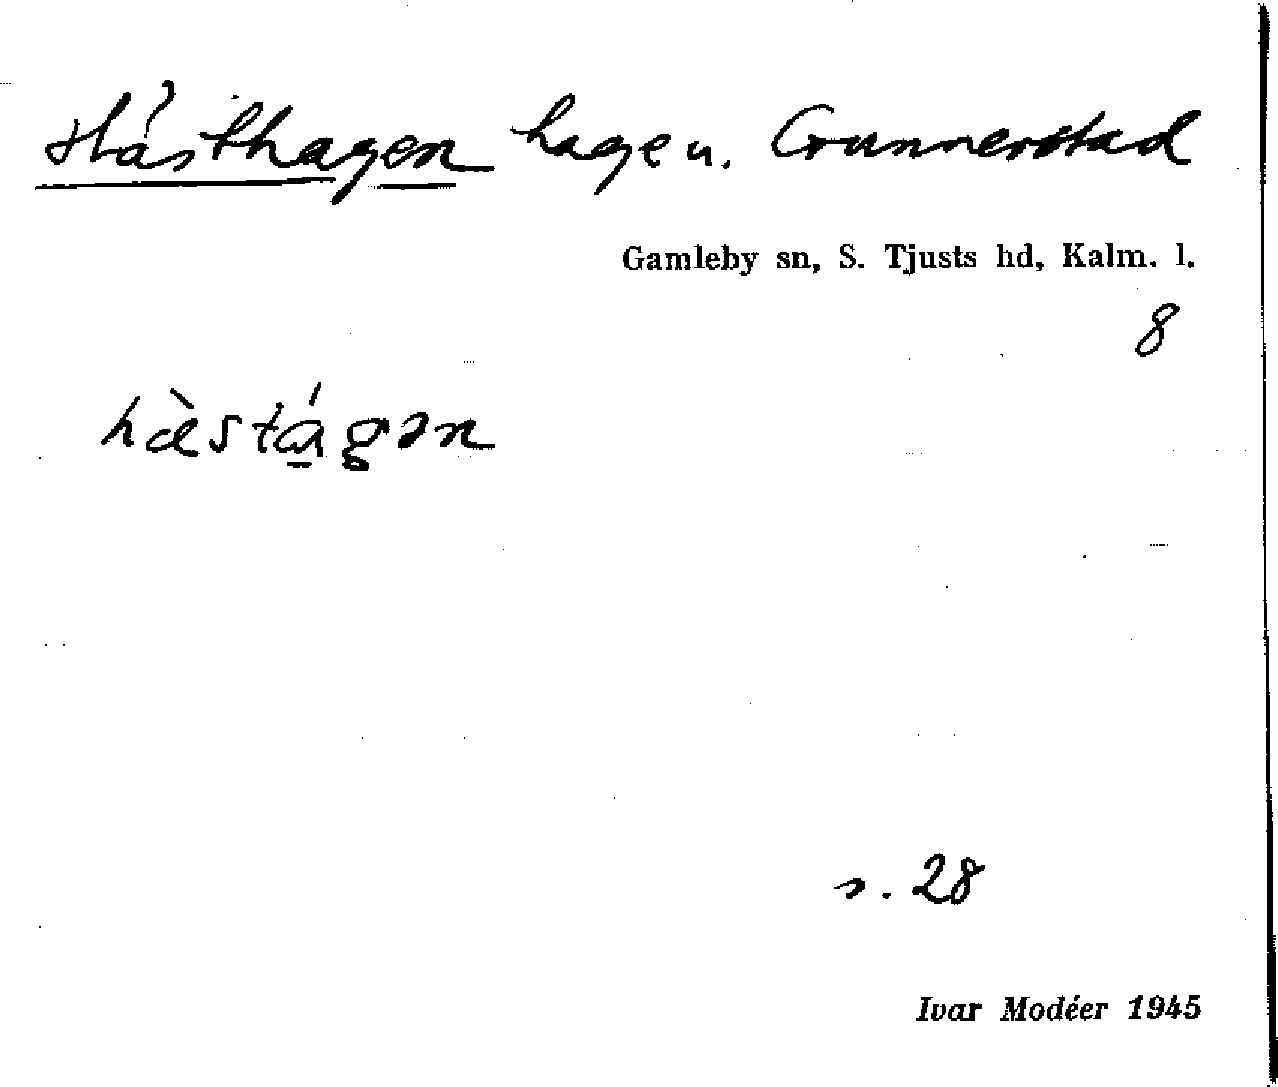 Hästhagen hage u. Gunnerstad
Gamleby sn, S. Tjusts hd, Kalm. l.
8
hæ̀stágən
s. 28
Ivar Modéer 1945